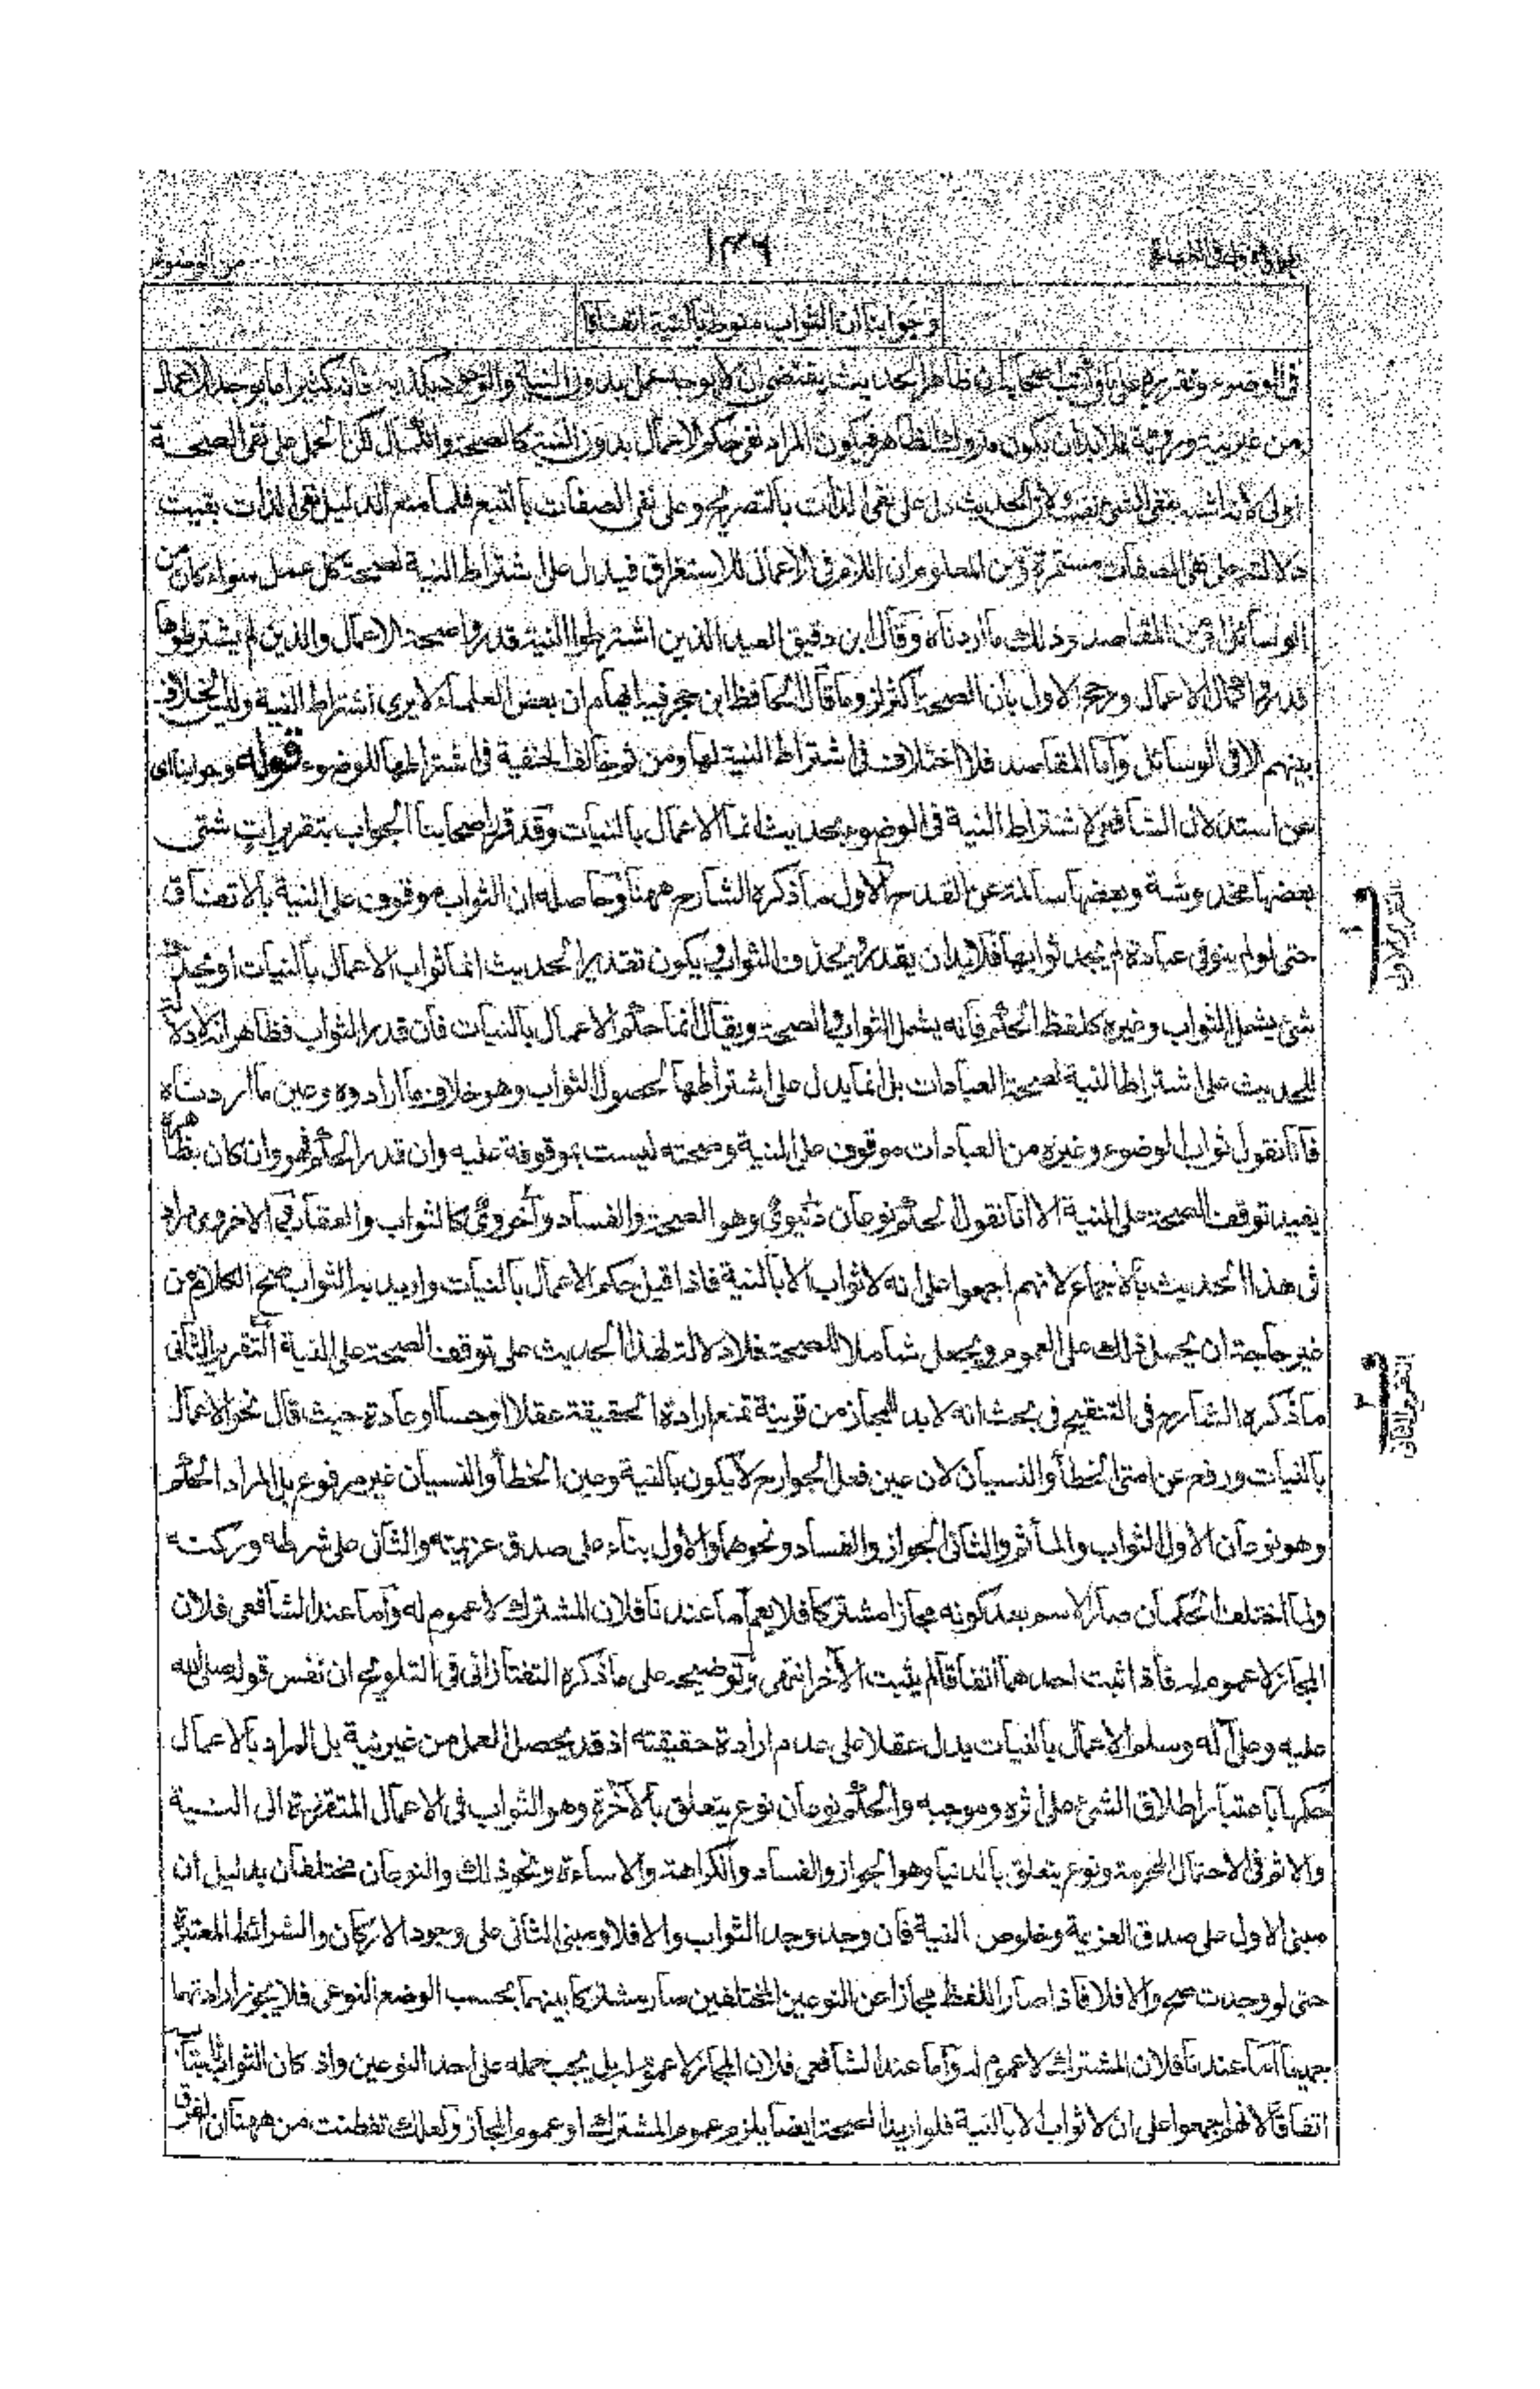 ١٣٦
من الوضوء
وجوابنا ان الثواب منوط بالنية اتفاقا
فى الوضوء وتقريره على ما فى كتب اصحابه ان ظاهر الحديث يقتضى ان لا يوجد عمل بدون النية كثيرا ما يوجد الاعمال
من غير نية فلابد ان يكون متروك الظاهر فيكون المراد نفى حكم الاعمال بدون النية كالصحة والكمال لكن الحمل على نفى الصحة
اولى لانه اشبه بنفى الشئ نفسه لان الحديث دل على نفى الذات بالتصريح وعلى نفى الصفات بالتبع فلما منع الدليل نفى الذات بقيت
دلالته على نفى الصفات مستمرة ومن المعلوم ان اللام فى الاعمال للاستغراق فيدل على اشتراط النية لصحة كل عمل سواء كان من
الوسائل او من المقاصد وذلك ما اردناه وقال ابن دقيق العيد الذين اشترطوا النية قدروا صحة الاعمال والذين لم يشترطوها
قدروا كمال الاعمال ورجح الاول بان الصحة اكثر لزوما قال الحافظ ابن حجر فيه ايهام ان بعض العلماء لا يرى اشتراط النية وليس الخلاف
بينهم الا فى الوسائل وأما المقاصد فلا اختلاف فى اشتراط النية لها ومن ثم خالف الحنفية فى اشتراطها للوضوء قوله وجوابنا اى
عن استدلال الشافعى لاشتراط النية فى الوضوء بحديث انما الاعمال بالنيات وقد قرر اصحابنا الجواب بتقريرات شتى
بعضها مخدوشة وبعضها سالمة عن القدح الاول ما ذكره الشارح ههنا وحاصله ان الثواب موقوف على النية بالاتفاق
حتى لو لم ينو فى عبادة لم يجد ثوابها فلابد ان يقدر فى الحديث الثواب فيكون تقدير الحديث انما ثواب الاعمال بالنيات او يقدر
شئ يشمل الثواب وغيره كلفظ الحكم فانه يشمل الثواب والصحة ويقال انما حكم الاعمال بالنيات فان قدر الثواب فظاهر انه لا دلالة
للحديث على اشتراط النية لصحة العبادات بل انما يدل على اشتراطها لحصول الثواب وهو خلاف ما ارادوه وعين ما اردناه
فانا نقول ثواب الوضوء وغيره من العبادات موقوف على النية وصحته ليست بموقوفة عليه وان قدر الحكم فهو وان كان بظاهره
يفيد توقف الصحة على النية الا انا نقول الحكم نوعان دنيوى وهو الصحة والفساد وأخروى كالثواب والعقاب والاخروى مراد
فى هذا الحديث بالاجماع لانهم اجمعوا على انه لا ثواب الا بالنية فاذا قيل حكم الاعمال بالنيات واريد به الثواب صح الكلام من
غير حاجة ان يحمل ذلك على العموم ويجعل شاملا للصحة فلا دلالة لهذا الحديث على توقف الصحة على النية التقرير الثانى
ما ذكره الشارح فى التنقيح فى بحث انه لابد للمجاز من قرينة تمنع ارادة الحقيقة عقلا او حسا او عادة حيث قال نحو الاعمال
بالنيات ورفع عن امتى الخطأ والنسيان لان عين فعل الجوارح لا يكون بالنية وعين الخطأ والنسيان غير مرفوع بل المراد الحكم
وهو نوعان الاول الثواب والمأثم والثانى الجواز والفساد ونحوهما والاول بناء على صدق عزيمته والثانى على شرطه وركنه
ولما اختلف الحكمان صار الاسم بعد كونه مجازا مشتركا فلا يعم أما عندنا فلان المشترك لا عموم له وأما عند الشافعى فلان
المجاز لا عموم له فاذا ثبت احدهما اتفاقا لم يثبت الآخر انتهى وتوضيحه على ما ذكره التفتازانى فى التلويح ان نفس قوله صلى الله
عليه وعلى آله وسلم الاعمال بالنيات يدل عقلا على عدم ارادة حقيقته اذ قد يحصل العمل من غير نية بل المراد بالاعمال
حكمها باعتبار اطلاق الشئ على اثره وموجبه والحكم نوعان نوع يتعلق بالآخرة وهو الثواب فى الاعمال المتقررة الى النية
والاثم فى الاحتمال المحرمة ونوع يتعلق بالدنيا وهو الجواز والفساد والكراهة والاساءة ونحو ذلك والنوعان مختلفان بدليل ان
مبنى الاول على صدق العزيمة وخلوص النية فان وجد وجد الثواب والا فلا ومبنى الثانى على وجود الاركان والشرائط المعتبرة
حتى لو وجدت صح والا فلا فاذا صار اللفظ مجازا عن النوعين المختلفين صار مشتركا بينهما بحسب الوضع النوعى فلا يجوز ارادتهما
جميعا أما عندنا فلان المشترك لا عموم له وأما عند الشافعى فلان المجاز لا عموم له بل يجب حمله على احد النوعين واذ كان الثواب ثابتا
اتفاقا لانهم اجمعوا على ان لا ثواب الا بالنية فلو اريد الصحة ايضا يلزم عموم المشترك او عموم المجاز ولعلك تفطنت من ههنا ان الفرق
التقرير الاول
١
التقرير الثانى
٢